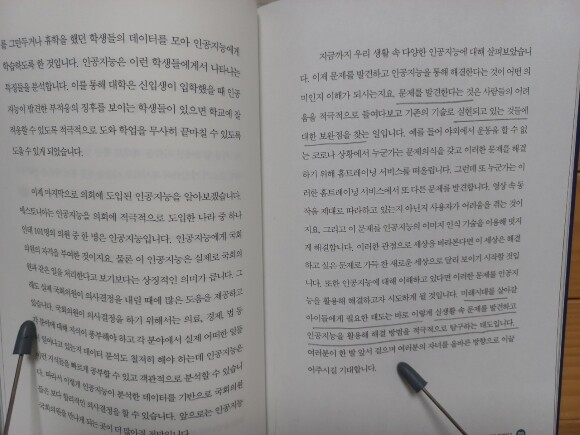 를 그만두거나 휴학을 했던 학생들의 데이터를 모아 인공지능에게
학습하도록 한 것입니다. 인공지능은 이런 학생들에게서 나타나는
특징들을 분석합니다. 이를 통해 대학은 신입생이 입학했을 때 인공
지능이 발견한 부적응의 징후를 보이는 학생들이 있으면 학교에 잘
적응할 수 있도록 적극적으로 도와 학업을 무사히 끝마칠 수 있도록
도울 수 있게 되었습니다.
이제 마지막으로 의회에 도입된 인공지능을 알아보겠습니다.
에스토니아는 인공지능을 의회에 적극적으로 도입한 나라 중 하나
인데 101명의 의원 중 한 명은 인공지능입니다. 인공지능에게 국회
의원의 자격을 부여한 것이지요. 물론 이 인공지능은 실제로 국회의
원과 같은 일을 처리한다고 보기보다는 상징적인 의미가 큽니다. 그
래도 실제 국회의원이 의사결정을 내릴 때에 많은 도움을 제공하고
있습니다. 국회의원이 의사결정을 하기 위해서는 의료, 경제, 법 등
분야에 대해 지식이 풍부해야 하고 각 분야에서 실제 어떠한 일들
일어나고 있는지 데이터 분석도 철저히 해야 하는데 인공지능은
지식들을 빠르게 공부할 수 있고 객관적으로 분석할 수 있습니
다. 따라서 이렇게 인공지능이 분석한 데이터를 기반으로 국회의원
들은 보다 합리적인 의사결정을 할 수 있습니다. 앞으로는 인공지능
국회의원을 만나게 되는 곳이 더 많아질 것입니다.
지금까지 우리 생활 속 다양한 인공지능에 대해 살펴보았습니
다. 이제 문제를 발견하고 인공지능을 통해 해결한다는 것이 어떤 의
미인지 이해가 되시는지요. 문제를 발견한다는 것은 사람들의 어려
움을 적극적으로 들여다보고 기존의 기술로 실현되고 있는 것들에
대한 보완점을 찾는 일입니다. 예를 들어 야외에서 운동을 할 수 없
는 코로나 상황에서 누군가는 문제의식을 갖고 이러한 문제를 해결
하기 위해 홈트레이닝 서비스를 떠올립니다. 그런데 또 누군가는 이
러한 홈트레이닝 서비스에서 또 다른 문제를 발견합니다. 영상 속 동
작을 제대로 따라하고 있는지 아닌지 사용자가 어려움을 겪는 것이
지요. 그리고 이 문제를 인공지능의 이미지 인식 기술을 이용해 멋지
게 해결합니다. 이러한 관점으로 세상을 바라본다면 이 세상은 해결
하고 싶은 문제로 가득 찬 새로운 세상으로 달리 보이기 시작할 것입
니다. 또한 인공지능에 대해 이해하고 있다면 이러한 문제를 인공지
능을 활용해 해결하고자 시도하게 될 것입니다. 미래시대를 살아갈
아이들에게 필요한 태도는 바로 이렇게 실생활 속 문제를 발견하고
인공지능을 활용해 해결 방법을 적극적으로 탐구하는 태도입니다.
여러분이 한 발 앞서 걸으며 여러분의 자녀를 올바른 방향으로 이끌
어주시길 기대합니다.